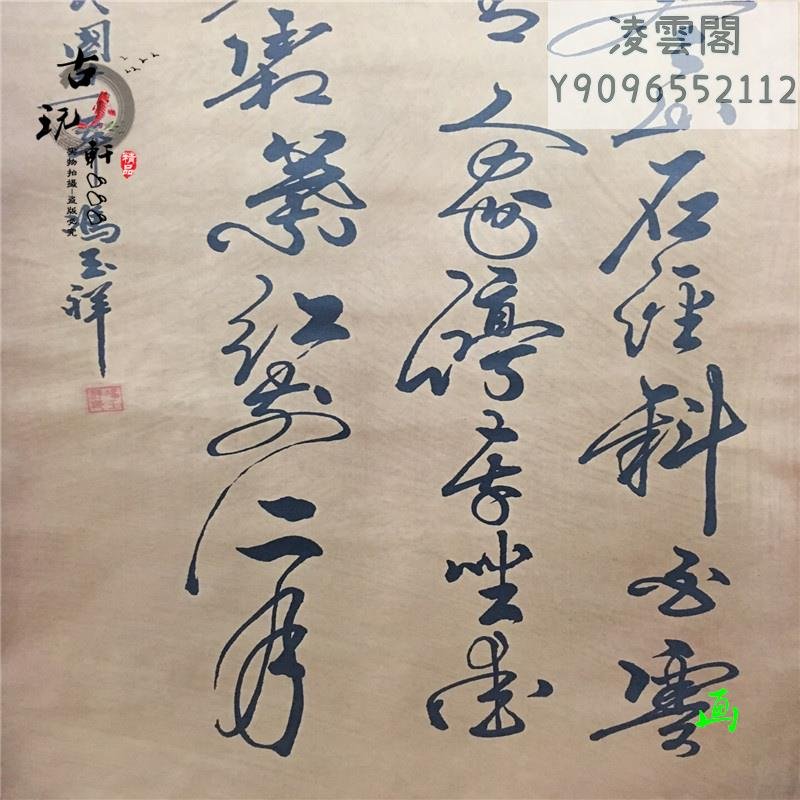 凌雲閣
Y9096552112
石徑斜白雲
人家停車坐愛
霜葉紅於二月
馮玉祥
古玩軒888
精品
实物拍摄-盗版必究
画